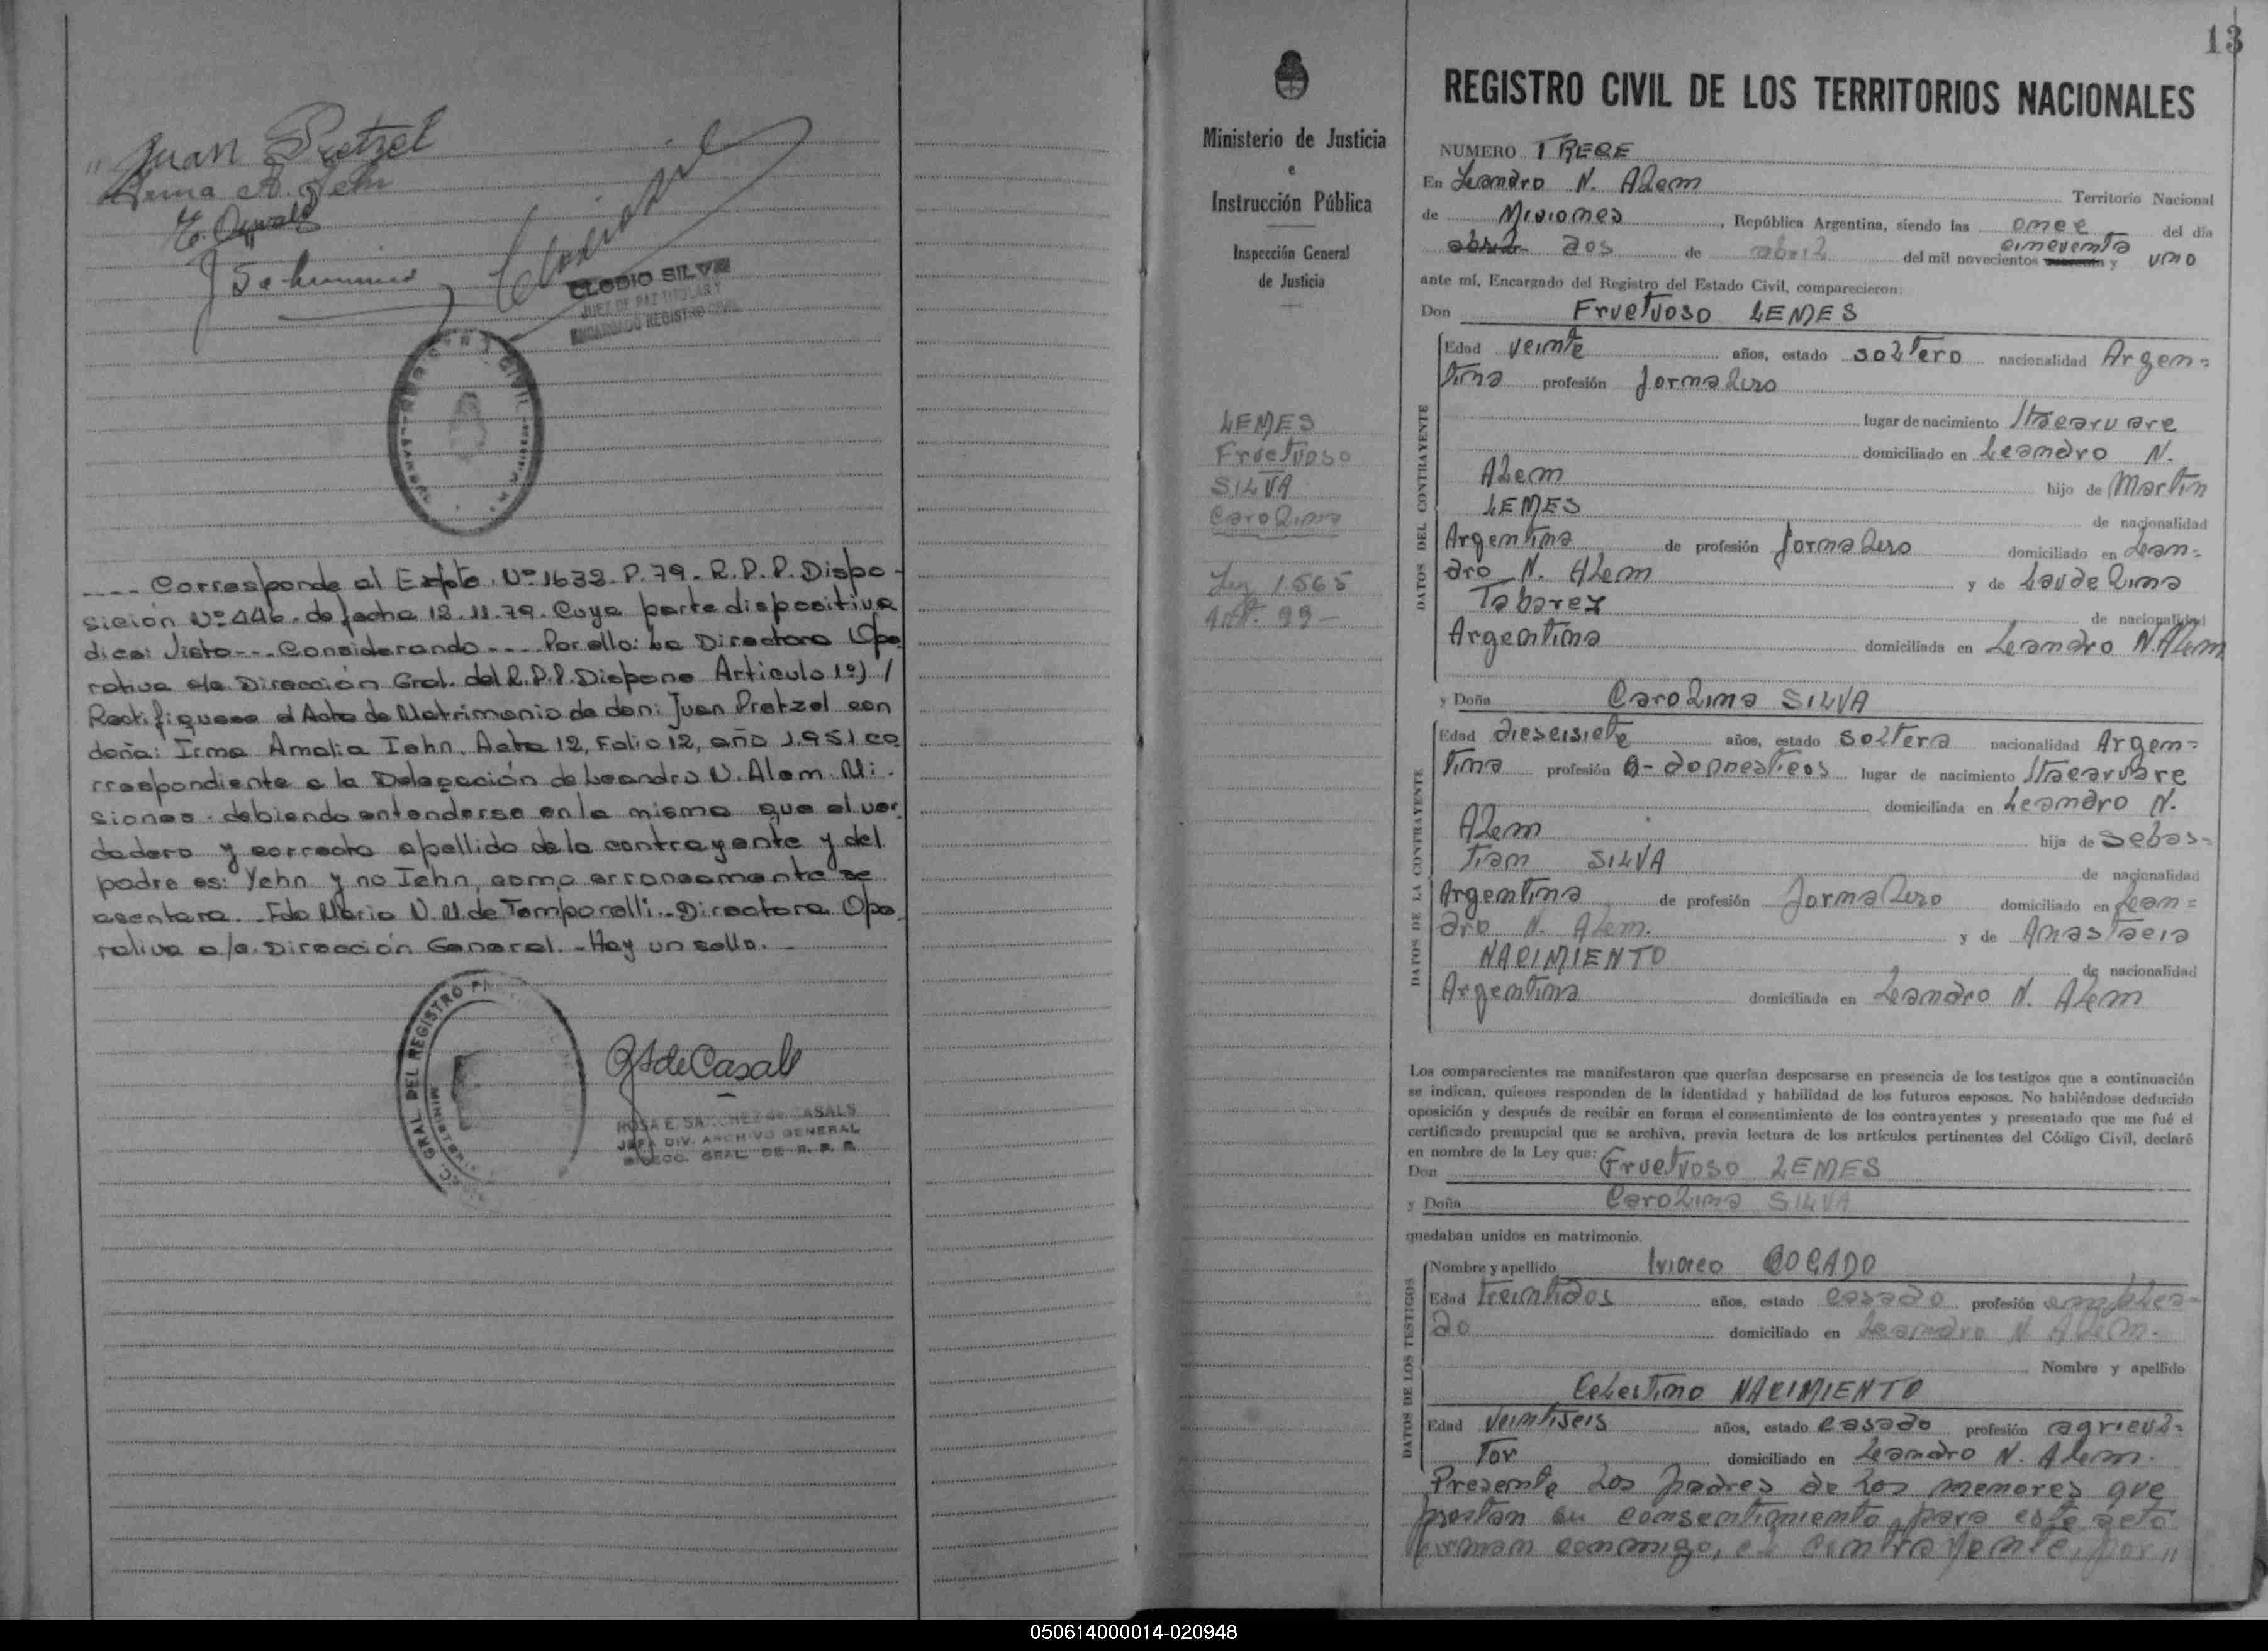 Juan Pretzel
Irma A. Iehn
E. Oswald
CLODIO SILVA
JUEZ DE PAZ TITULAR Y
ENCARGADO REGISTRO CIVIL
---- Corresponde al Expte. Nº 1632. P. 79. R.P.P. Dispo-
sición Nº 446. de fecha 12.11.79. Cuya parte dispositiva
dice: Visto--- Considerando ---- Por ello: La Directora Ope
rativa a/c Dirección Gral. del R.P.P. Dispone Artículo 1º) /
Rectifiquese el Acta de Matrimonio de don: Juan Pretzel con
doña: Irma Amalia Iehn. Acta 12, Folio 12, año 1.951 co
rrespondiente a la Delegación de Leandro N. Alem. Mi-
siones. debiendo entenderse en la misma que el ver
dadero y correcto apellido de la contrayente y del
padre es: Yehn y no Iehn, como erroneamente se
asentara. - Fdo Maria N. M. de Temporelli.- Directora Ope
rativa a/c. Dirección General. - Hay un sello. -
GRAL DEL REGISTRO
RSdeCasals
ROSA E. SANCHEZ de CASALS
JEFA DIV. ARCHIVO GENERAL
DIRECC. GRAL. DE R. P. P.
13
Ministerio de Justicia
e
Instrucción Pública
Inspección General
de Justicia
LEMES
Fructuoso
SILVA
Carolina
Ley 1.565
Art. 99-
REGISTRO CIVIL DE LOS TERRITORIOS NACIONALES
NUMERO TRECE
En Leandro N. Alem Territorio Nacional
de Misiones, República Argentina, siendo las once del día
abril dos de abril del mil novecientos cincuenta y uno
ante mí, Encargado del Registro del Estado Civil, comparecieron:
Don Fructuoso LEMES
DATOS DEL CONTRAYENTE
Edad veinte años, estado soltero nacionalidad Argen=
tina profesión jornalero
lugar de nacimiento Itacaruare
domiciliado en Leandro N.
Alem hijo de Martin
LEMES de nacionalidad
Argentina de profesión jornalero domiciliado en Lean=
dro N. Alem y de Laudelina
Tabarez de nacionalidad
Argentina domiciliada en Leandro N. Alem
y Doña Carolina SILVA
DATOS DE LA CONTRAYENTE
Edad dieseisiete años, estado soltera nacionalidad Argen=
tina profesión Q- domesticos lugar de nacimiento Itacaruare
domiciliada en Leandro N.
Alem hija de Sebas=
tian SILVA de nacionalidad
Argentina de profesión Jornalero domiciliado en Lean=
dro N. Alem. y de Anastacia
NACIMIENTO de nacionalidad
Argentina domiciliada en Leandro N. Alem
Los comparecientes me manifestaron que querían desposarse en presencia de los testigos que a continuación
se indican, quienes responden de la identidad y habilidad de los futuros esposos. No habiéndose deducido
oposición y después de recibir en forma el consentimiento de los contrayentes y presentado que me fué el
certificado prenupcial que se archiva, previa lectura de los artículos pertinentes del Código Civil, declaré
en nombre de la Ley que:
Don Fructuoso LEMES
y Doña Carolina SILVA
quedaban unidos en matrimonio.
DATOS DE LOS TESTIGOS
Nombre y apellido
Edad treintidos años, estado casado profesión emplea-
do domiciliado en Leandro N. Alem.
Nombre y apellido
Celestino NACIMIENTO
Edad veintiseis años, estado casado profesión agricul=
tor domiciliado en Leandro N. Alem.
Presente los padres de los menores que
prestan su consentimiento para este acto
firman conmigo, el contrayente, por "
050614000014-020948